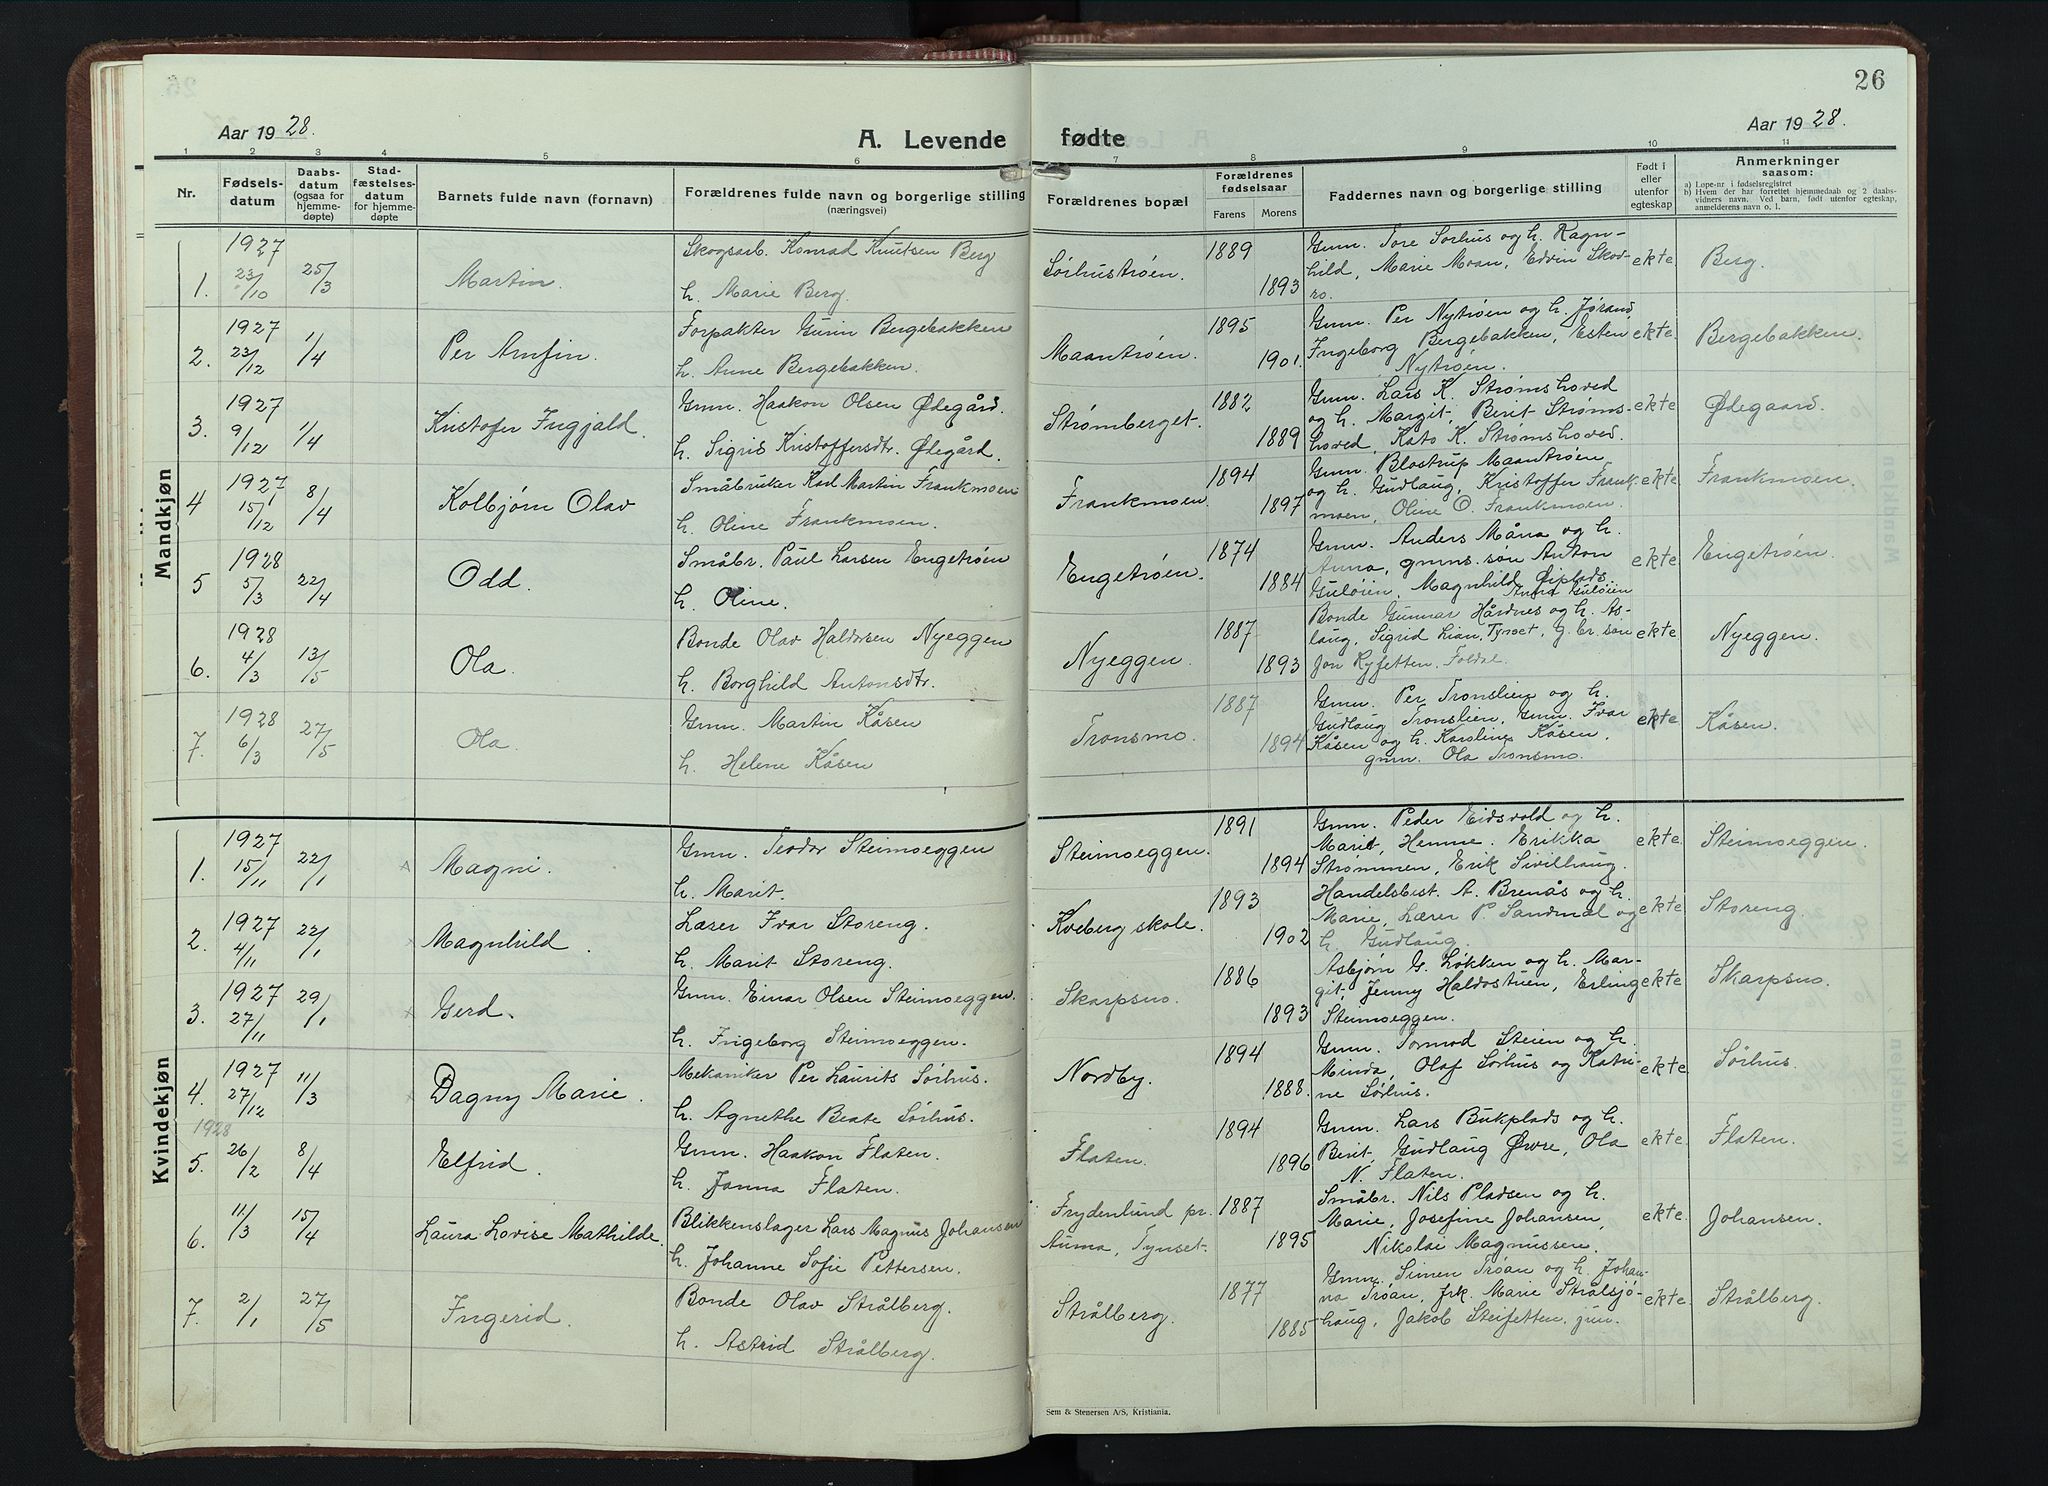 26
Aar 1928.
A. Levende fødte
Aar 1928.
1 2 3 4 5 6 7 8 9 10 11
Nr.
Fødsels-
datum
Daabs-
datum
(ogsaa for
hjemme-
døpte)
Stad-
fæstelses-
datum
for hjemme-
døpte
Barnets fulde navn (fornavn)
Forældrenes fulde navn og borgerlige stilling
(næringsvei)
Forældrenes bopæl
Forældrenes
fødselsaar
Farens Morens
Faddernes navn og borgerlige stilling
Født i
eller
utenfor
egteskap
Anmerkninger
saasom:
a) Løpe-nr i fødselsregistret
b) Hvem der har forrettet hjemmedaab og 2 daabs-
vidners navn. Ved barn, født utenfor egteskap,
anmelderens navn o. l.
Mandkjøn
1. 1927 23/10 25/3 Martin.
Skogsarb. Konrad Knutsen Berg
h. Marie Berg.
Sørhustrøen. 1889 1893
Gmn. Tore Sørhus og h. Ragn-
hild, Marie Moan, Edvin Skod-
ro.
ekte Berg.
2. 1927 23/12 1/4 Per Arnfin.
Forpakter Gunn Bergebakken
h. Anne Bergebakken.
Maantrøen. 1895 1901.
Gmn. Per Nytrøen og h. Jørand
Ingeborg Bergebakken, Esten
Nytrøen.
ekte. Bergebakken.
3. 1927 9/12 1/4 Kristofer Ingjald.
Gmn. Haakon Olsen Ødegård.
h. Sigrid Kristoffersdtr. Ødegård.
Strømberget. 1882 1889
Gmn. Lars K. Strømshoved
og h. Margit, Berit Strøms-
hoved, Kato K. Strømshoved.
ekte Ødegaard.
4 1927 15/12 8/4 Kolbjørn Olav
Småbruker Karl Martin Frankmoen
h. Oline Frankmoen.
Frankmoen. 1894 1897
Gmn. Blostrup Maantrøen
og h. Gudlaug, Kristoffer Frank-
moen, Oline O. Frankmoen.
ekte. Frankmoen.
5 1928 5/3 22/4 Odd.
Småbr. Paul Larsen Engetrøen
h. Oline.
Engetrøen. 1874 1884
Gmn. Anders Måna og h.
Anna, gmns. søn Anton
Guløien, Magnhild Øiplads.
Anna Guløien
ekte Engetrøen.
6. 1928 4/3 13/5 Ola.
Bonde Olav Haldorsen Nyeggen
h. Borghild Antonsdtr.
Nyeggen. 1887 1893
Bonde Gunnar Hårdnes og h. As-
laug, Sigrid Lian, Tynset, g.br. søn
Jon Ryfetten. Foldal.
ekte Nyeggen.
7. 1928 6/3 27/5 Ola.
Gmn. Martin Kåsen
h. Helene Kåsen
Tronsmo. 1887 1894
Gmn. Per Tronslien og h.
Gudlaug Tronslien, Gmn. Ivar
Kåsen og h. Karoline Kåsen,
gmn. Ola Tronsmo.
ekte Kåsen.
Kvindekjøn
1. 1927 15/11 22/1 Magni.
Gmn. Teodor Steimoeggen
h. Marit.
Steimoeggen. 1891 1894
Gmn. Peder Eidsvold og h.
Marit, Hemne. Erikka
Strømmen, Erik Sivilhaug.
ekte. Steimoeggen.
2. 1927 4/11 22/1 Magnhild.
Lærer Ivar Storeng.
h. Marit Storeng.
Kveberg skole. 1893 1902
Handelsbest. A. Brenås og h.
Marie, Lærer P. Sandmæl og
h. Gudlaug.
ekte. Storeng.
3. 1927 27/11 29/1 Gerd.
Gmn. Einar Olsen Steimoeggen.
h. Ingeborg Steimoeggen.
Skarpsno. 1886 1893
Asbjørn G. Løkken og h. Mar-
git, Jenny Haldostuen, Erling
Steimoeggen.
ekte Skarpsno.
4. 1927 27/12 11/3 Dagny Marie.
Mekaniker Per Laurits Sørhus.
h. Agnethe Beate Sørhus.
Nordby. 1894 1888.
Gmn. Tormod Steien og h.
Minda, Olaf Sørhus og Katri-
ne Sørhus.
ekte. Sørhus.
1928
5. 26/2 8/4 Elfrid.
Gmn. Haakon Flaten.
h. Janna Flaten.
Flaten. 1894 1896
Gmn. Lars Bukplads og h.
Berit, Gudlaug Øvre, Ola
N. Flaten.
ekte. Flaten.
6. 11/3 15/4 Laura Lovise Mathilde.
Blikkenslager Lars Magnus Johansen
h. Johanne Sofie Pettersen.
Frydenlund pr.
Auma, Tynset. 1887 1895
Småbr. Nils Pladsen og h.
Marie, Josefine Johansen,
Nikolai Magnussen.
ekte. Johansen.
7. 2/1 27/5 Ingerid.
Bonde Olav Strålberg.
h. Astrid Strålberg.
Strålberg. 1877 1885
Gmn. Simen Trøan og h. Johan-
na Trøan, frk. Marie Strålsjø-
haug, Jakob Steifetten, jun.
ekte. Strålberg.
Sem & Stenersen A/S, Kristiania.